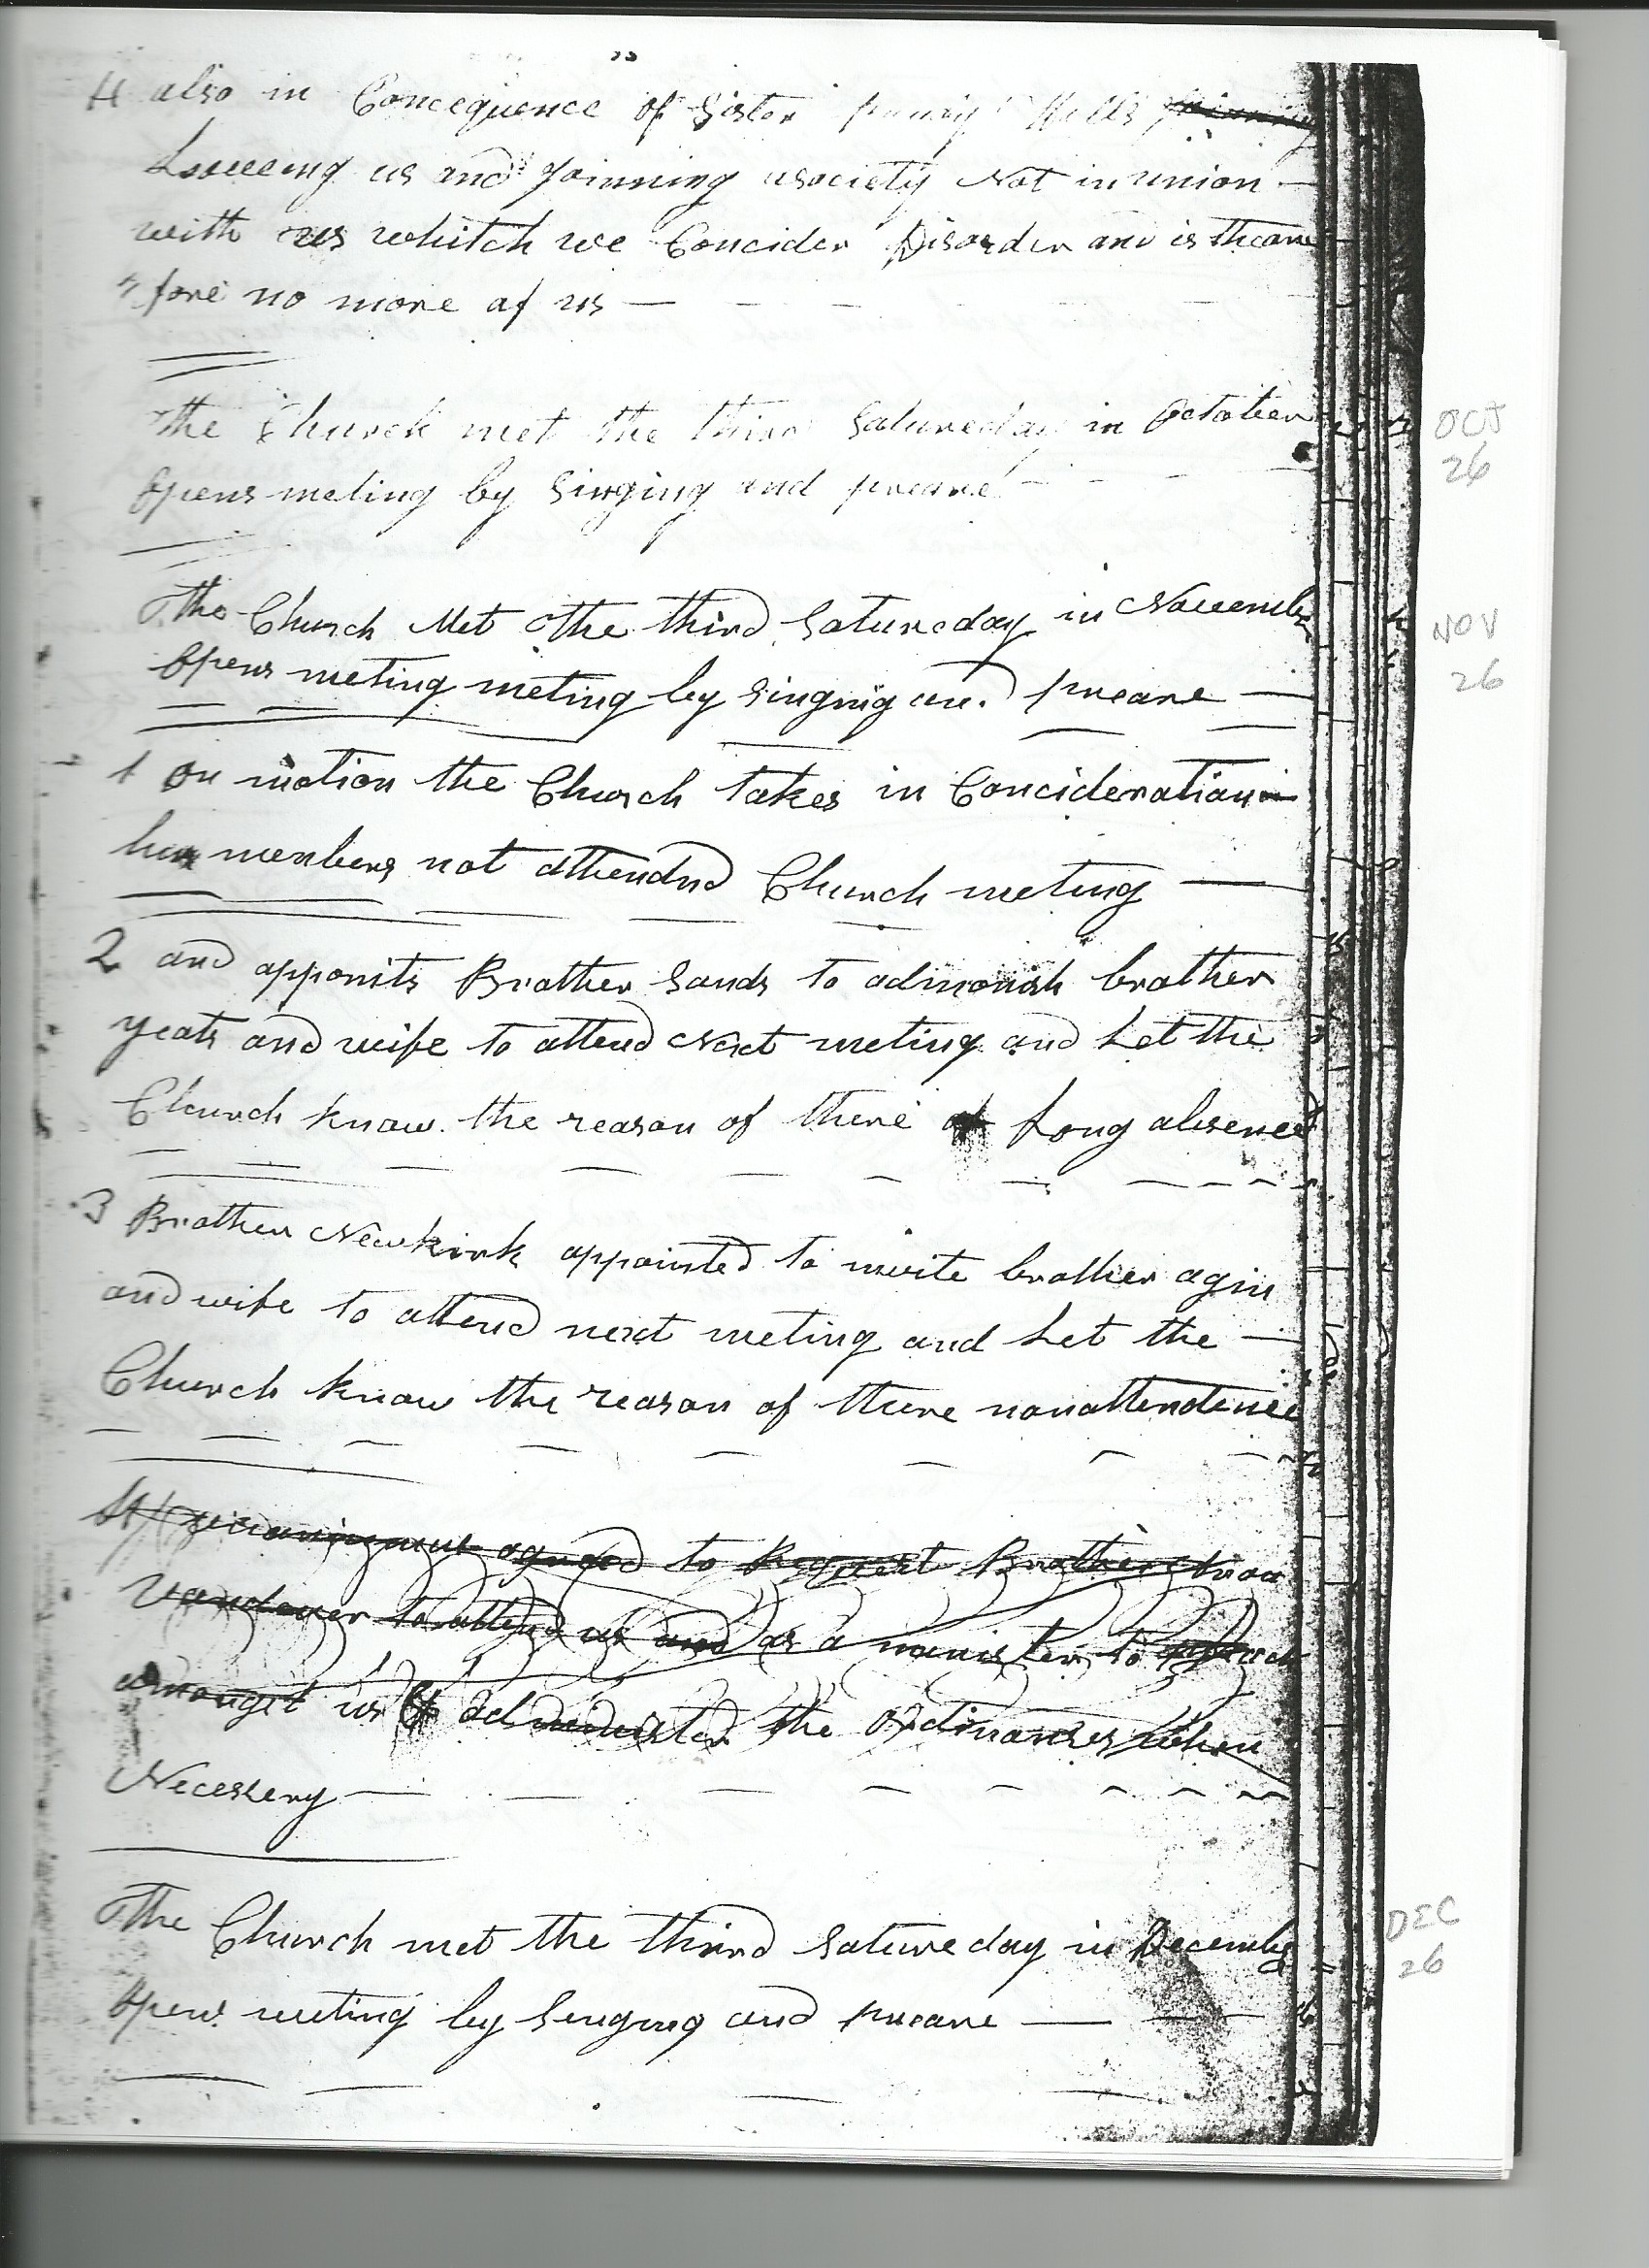 4 also in Concequence of Sister Hills
Leveeing us and Joinning asociety Not in union
with us whitch we Concider Disorder and is theare
fore no more af us
The Church met the third Satureday in October
Opens meting by Singing and preare
OCT
26
The Church Met The third Satureday in November
Opens meting meting by Singing and preare
NOV
26
1 On motion the Church takes in Concideration
her members not attended Church meting
2 and apponits Brother Sands to admonish brother
yeats and wife to attend Next meting and Let the
Church know the reason of there Long absence
3 Brother Newkirk appointed to invite brother agin
and wife to attend next meting and Let the
Church know the reason of there nonattendence
agreed to Request Brother
to attend us and as a minister to preach
amongst us & Adminester the Ordinances when
Necessery
The Church met the third Satureday in December
Opens meeting by Singing and preare
DEC
26